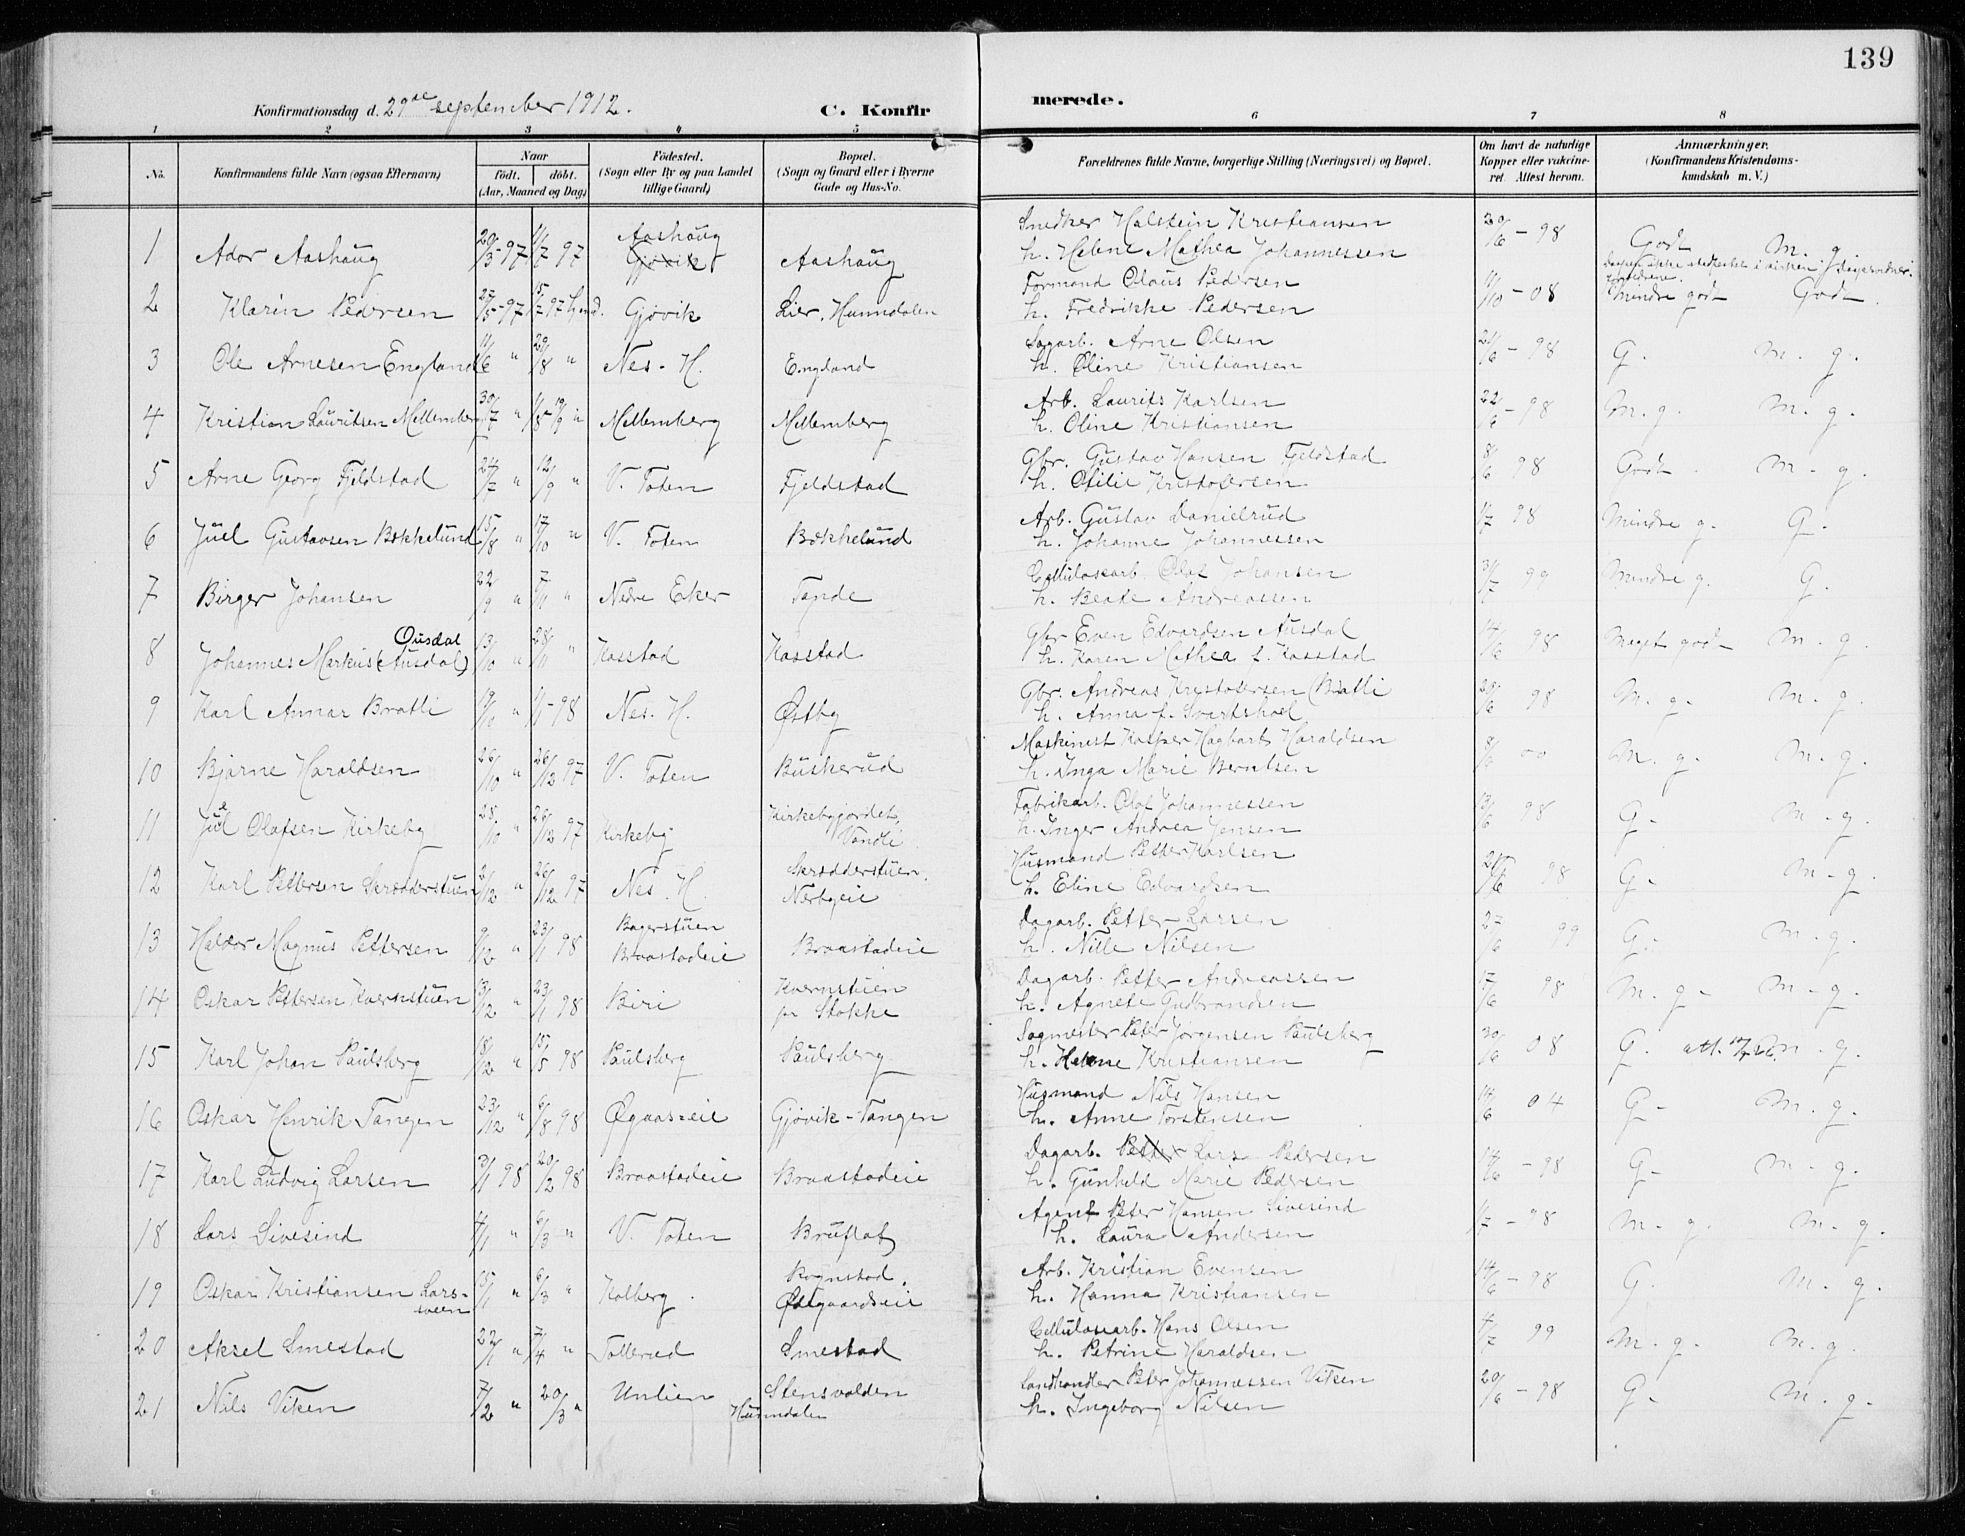 139
Konfirmationsdag d. 29de september 1912.
C. Konfirmerede.
1 2 3 4 5 6 7 8
No. Konfirmandens fulde Navn (ogsaa Efternavn) Naar født. døbt. (Aar, Maaned og Dag) Fødested. (Sogn eller By og paa Landet tillige Gaard) Bopæl. (Sogn og Gaard eller i Byerne Gade og Hus-No. Forældrenes fulde Navne, borgerlige Stilling (Næringsvei) og Bopæl. Om havt de naturlige Kopper eller vakcineret. Attest herom. Anmærkninger. (Konfirmandens Kristendomskundskab m. V.)
1 Ador Aashaug 20/3-97 11/7 97 Aashaug Gjøvik Aashaug Snedker Halstein Kristiansen 20/6 - 98 Godt M. g.
h. Helene Mathea Johannessen
2 Klarin Pedersen 27/5-97 15/7 97 hjmd. Gjøvik Lier, Hunndalen Formand Olaus Pedersen 11/10 - 08 Mindre godt Godt.
h. Fredrikke Pedersen
3 Ole Arnesen England 11/6 " 29/8 " Nes. H. England Sagarb. Arne Olsen 21/6 - 98 G. M. g.
h. Oline Kristiansen
4 Kristian Lauritsen Mellemberg 30/7 " Mellemberg Mellemberg Arb. Laurits Karlsen 22/6 - 98 M. g. M. g.
h. Oline Kristiansen
5 Arne Georg Fjeldstad 24/7 " 12/9 " V. Toten Fjeldstad Gbr. Gustav Hansen Fjeldstad 8/6 98 Godt M. g.
h. Otilie Kristofersen
6 Juel Gustavsen Bækkelund 15/8 " 17/10 " V. Toten Bækkelund Arb. Gustav Danielrud 1/7 98 Mindre g. G.
h. Johanne Johannessen
7 Birger Johansen 22/9 " 7/11 " Nedre Eker Tande Cellulosearb. Olaf Johansen 31/7 99 Mindre g. G.
h. Beate Andreassen
8 Johannes Markus (Ausdal) Ousdal 13/10 " 28/11 " Kasstad Kasstad Gbr Even Edvardsen Ausdal 14/6 98 Meget godt M. g.
h. Karen Mathea f. Kasstad
9 Karl Annar Bratli 19/10 " 1/1-98 Nes. H. Østby Gbr. Andreas Kristofersen (Bratli 20/6 98 M. g. M. g.
h. Anna f. Svartshoel
10 Bjarne Haraldsen 26/10 " 26/12 97 V. Toten Buskerud Maskinest Kasper Hagbart Haraldsen 8/6 00 M. g. M. g.
h. Inga Marie Berntsen
11 Juel Olafsen Kirkeby 28/10 " 26/12 97 Kirkeby Kirkebygjordet, Vandli Fabrikarb. Olaf Johannessen 13/6 98 G. M. g.
h. Inger Andrea Jensen
12 Karl Pettersen Skrædderstuen 2/12 " 26/12 97 Nes H. Skrædderstuen, Nerbyeie Husmand Petter Karlsen 98 G. M. g.
h. Eline Edvardsen
13 Haldor Magnus Pettersen 9/12 " 23/1 98 Bagerstuen Braastadeie Braastadeie Dagarb. Petter Larsen 27/6 99 G. M. g.
h. Nille Nilsen
14 Oskar Pettersen Kvernstuen 13/12 " 23/1 98 Biri Kvernstuen pr Stokke Dagarb. Petter Andreassen 17/6 98 M. g. M. g.
h. Agnete Gudbrandsen
15 Karl Johan Paulsberg 18/12 " 15/5 98 Paulsberg Paulsberg Sagmester Peter Jørgensen Paulsberg 30/6 08 G. M. g.
h. Helene Kristiansen
16 Oskar Henrik Tangen 23/12 " 6/8 98 Øgaaseie Gjøvik-Tangen Husmand Nils Hansen 14/6 04 G. M. g.
h. Anne Torstensen
17 Karl Ludvig Larsen 3/1 98 20/2 98 Braastadeie Braastadeie Dagarb. Petter Lars Pedersen 14/6 - 98 G. M. g.
h. Gunhild Marie Pedersen
18 Lars Sivesind 4/1 " 6/3 " V. Toten Bruflat Agent Peter Hansen Sivesind 1/7 - 98 M. g. M. g.
h. Laura Andersen
19 Oskar Kristiansen Larssveen 15/1 " 6/3 " Kolberg Rognstad, Østgaardseie Arb. Kristian Evensen 14/6 - 98 G. M. g.
h. Hanna Kristiansen
20 Aksel Smestad 22/1 " 7/4 " Tollerud Smestad Cellulosearb. Hans Olsen 4/7 99 M. g. M. g.
h. Petrine Haraldsen
21 Nils Viken 7/2 " 20/3 " Unlien Stensvolden Hunndalen Landhandler Peter Johannessen Vitsen 20/6 - 98 G. M. g.
h. Ingeborg Nilsen